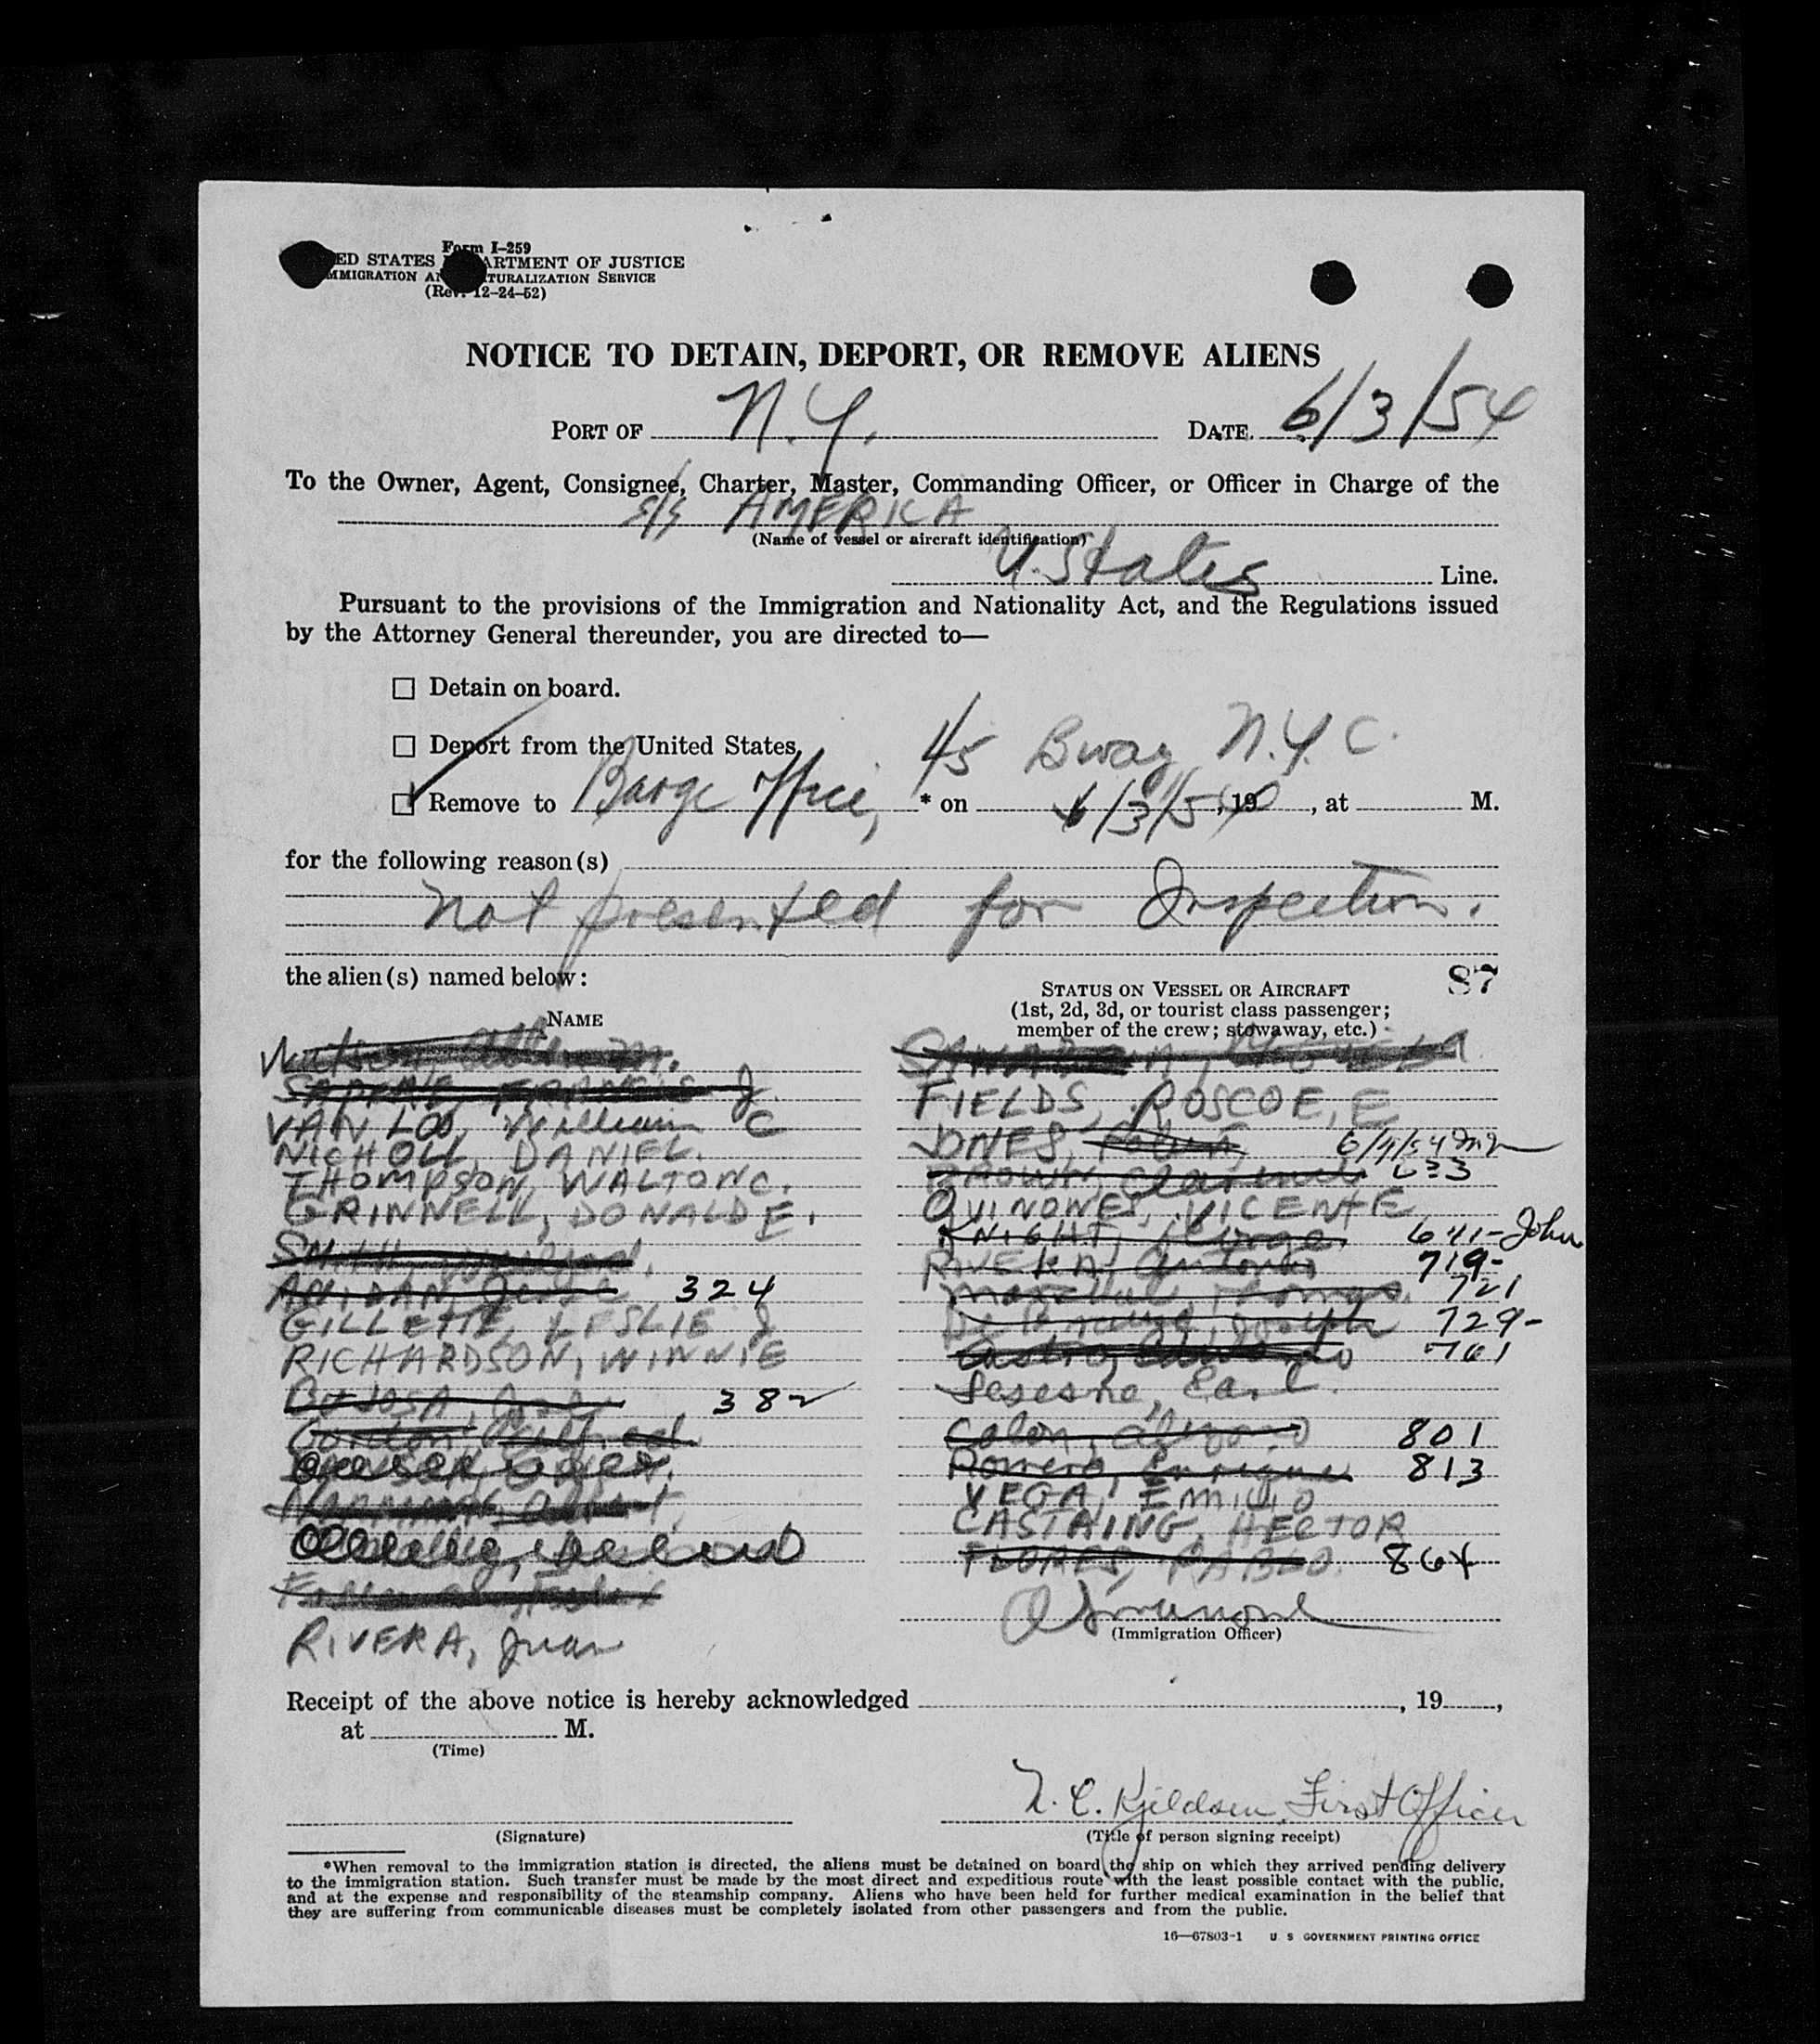 Form I-259
ED STATES ARTMENT OF JUSTICE
MMIGRATION AN TURALIZATION SERVICE
(Rev. 12-24-52)
NOTICE TO DETAIN, DEPORT, OR REMOVE ALIENS
PORT OF N.Y. DATE 6/3/54
To the Owner, Agent, Consignee, Charter, Master, Commanding Officer, or Officer in Charge of the
S/S AMERICA
(Name of vessel or aircraft identification)
U. States Line.
Pursuant to the provisions of the Immigration and Nationality Act, and the Regulations issued
by the Attorney General thereunder, you are directed to—
Detain on board.
Deport from the United States.
Bway N.Y.C.
Remove to Barge Office, * on 6/3/54, 19 , at M.
for the following reason(s)
not presented for Inspection.
the alien(s) named below: 87
NAME
STATUS ON VESSEL OR AIRCRAFT
(1st, 2d, 3d, or tourist class passenger;
member of the crew; stowaway, etc.)
J.
VAN LOO, William C
NICHOLL, DANIEL.
THOMPSON, WALTON C.
GRINNELL, DONALD E.
324
GILLETTE, LESLIE J
RICHARDSON, WINNIE
382
Gordon,
RIVERA, Juan
FIELDS, ROSCOE, E
JONES, 6/4/54
BROWN, Clarence 633
QUINONES, VICENTE
KNIGHT, George 641-John
RIVERA, Antonio 719-
Thomas 721
Joseph 729-
Castro, 761
Sesesne, Earl.
Colon, 801
Romero, Enrique 813
VEGA, EMILIO
CASTAING, HECTOR
FLORES, PABLO. 864
(Immigration Officer)
Receipt of the above notice is hereby acknowledged , 19 ,
at M.
(Time)
N. C. Kjeldsen, First Officer
(Signature) (Title of person signing receipt)
*When removal to the immigration station is directed, the aliens must be detained on board the ship on which they arrived pending delivery
to the immigration station. Such transfer must be made by the most direct and expeditious route with the least possible contact with the public,
and at the expense and responsibility of the steamship company. Aliens who have been held for further medical examination in the belief that
they are suffering from communicable diseases must be completely isolated from other passengers and from the public.
16—67803-1 U S GOVERNMENT PRINTING OFFICE